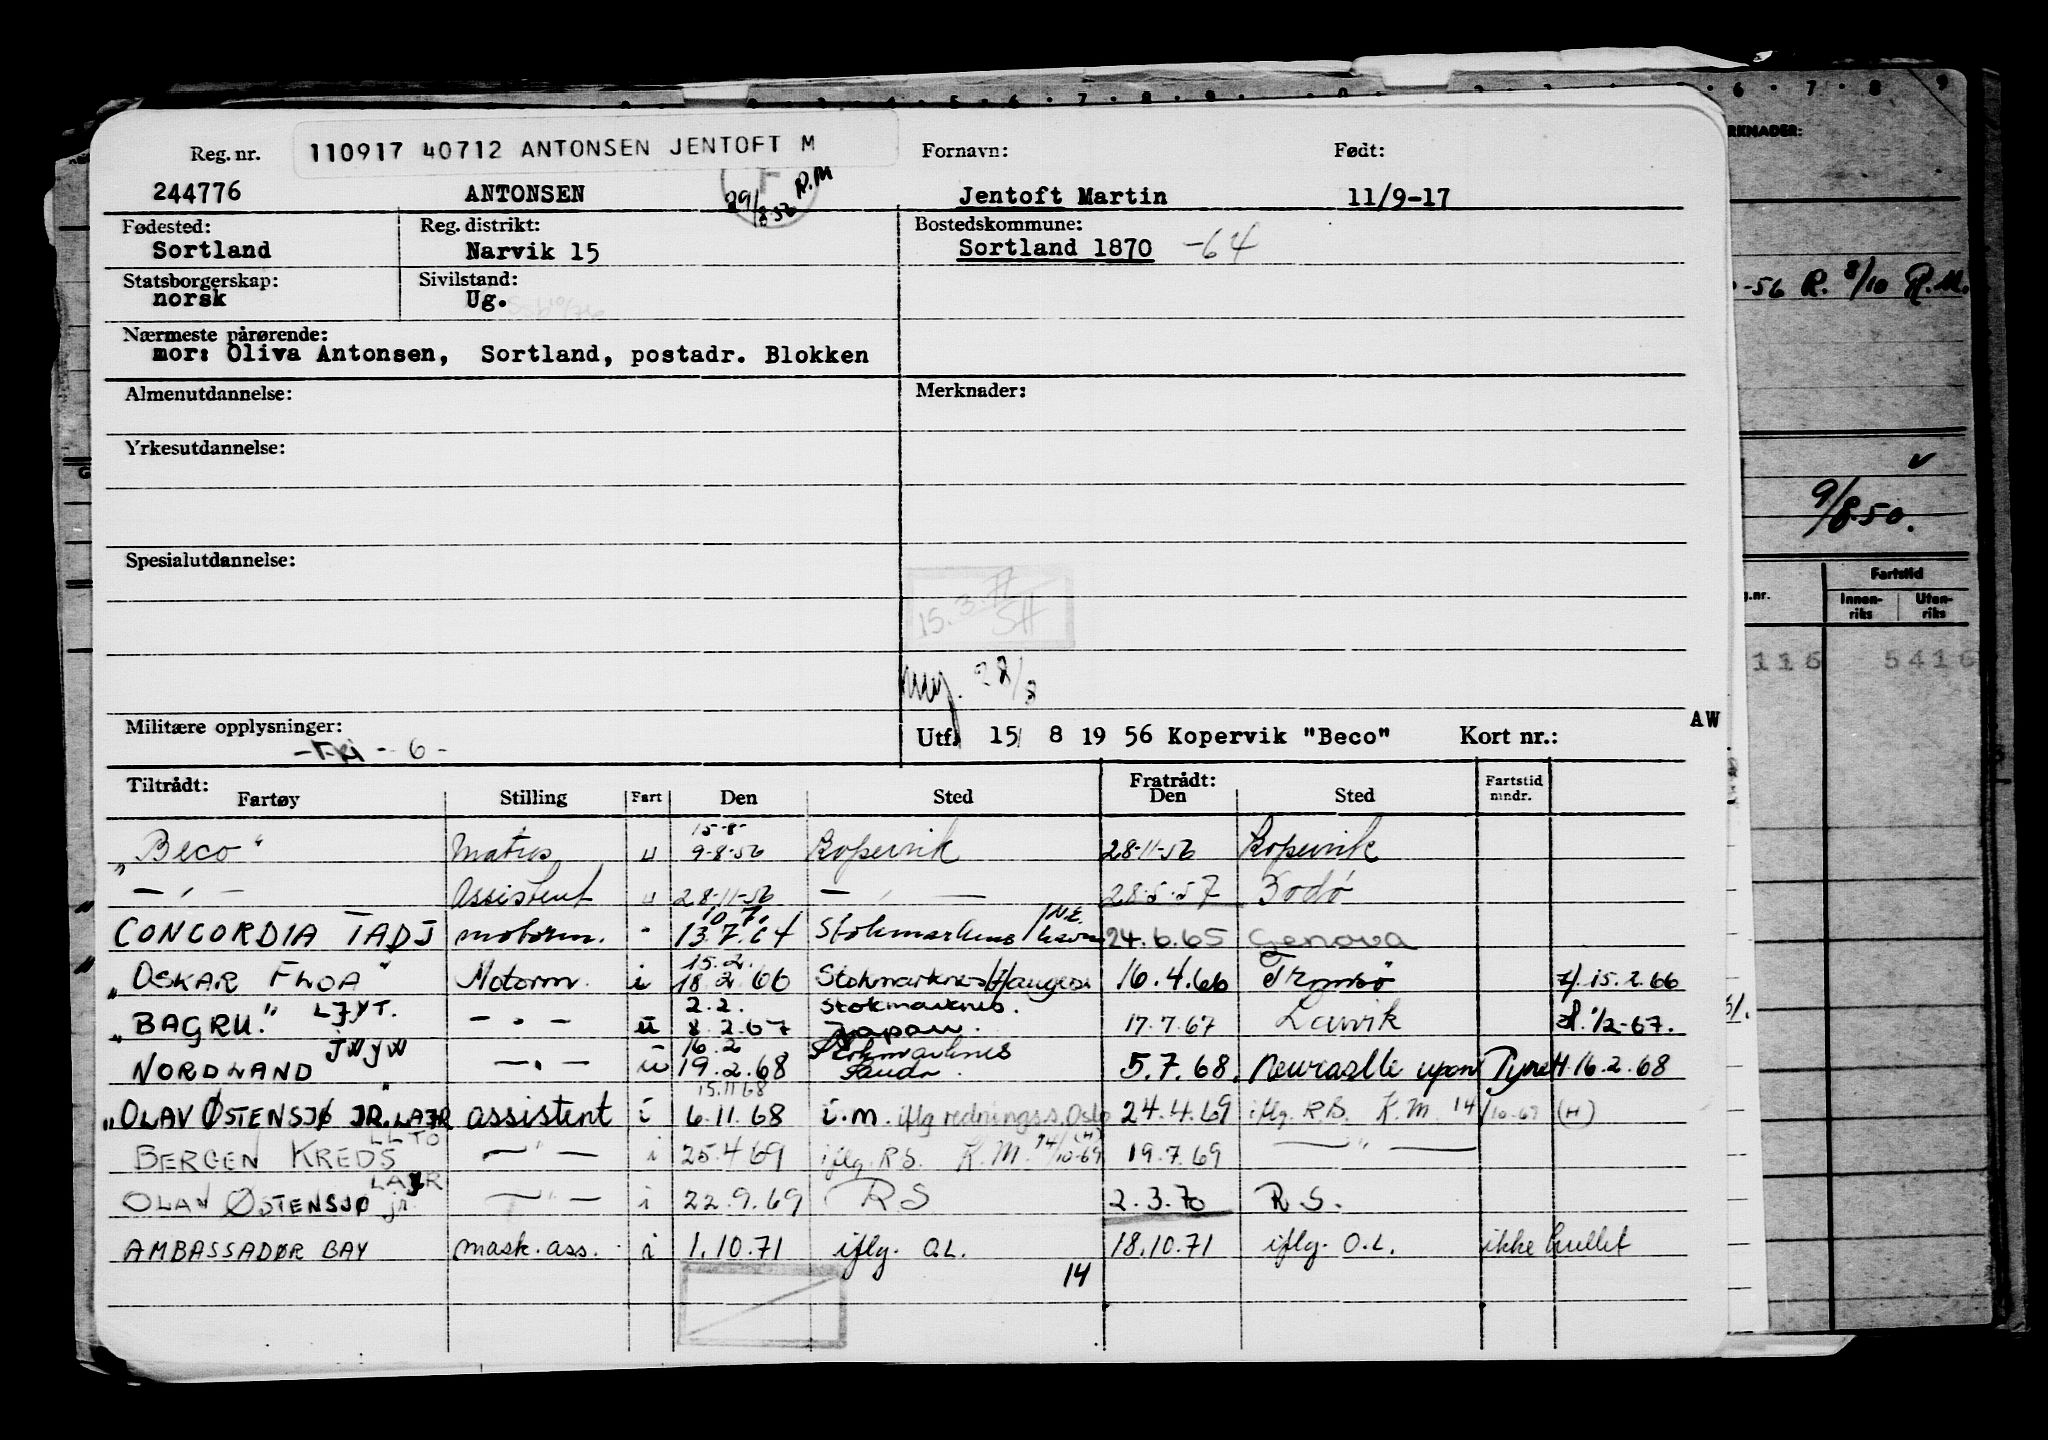 Reg. nr. 110917 40712 ANTONSEN JENTOFT M Fornavn: Født:
244776 ANTONSEN 29/8.56 R.M Jentoft Martin 11/9-17
Fødested: Reg. distrikt: Bostedskommune:
Sortland Narvik 15 Sortland 1870 -64
Statsborgerskap: Sivilstand:
norsk Ug.
Nærmeste pårørende:
mor: Oliva Antonsen, Sortland, postadr. Blokken
Almenutdannelse: Merknader:
Yrkesutdannelse:
Spesialutdannelse:
15.3.72
SH
28/8
Militære opplysninger: Utf. 15/ 8 19 56 Kopervik "Beco" Kort nr.: AW
-Fri - 6 -
Tiltrådt: Fratrådt: Fartstid
Fartøy Stilling Fart Den Sted Den Sted mndr.
15-8-
"Beco" Matros u 9-8-56 Kopervik 28-11-56 Kopervik
— " — Assistent u 28-11-56 — " — 28.5.57 Bodö
10.7.
CONCORDIA TADJ motorm. " 13.7.64 Stokmarknes / 24.6.65 Genova
15.2.
"OSKAR FLOA" Motorm. i 18.2.66 Stokmarknes/Haugesu 16.4.66 Tromsø 15.2.66
2.2. Stokmarknes.
"BAGRU." LJYT. — " — u 8.2.67 Japan. 17.7.67 Larvik 1/2-67.
16.2 Stokmarknes
NORDLAND JWYW — " — u 19.2.68 Sauda. 5.7.68. Newcastle upon Tyne H. 16.2.68
15.11 68
"OLAV ØSTENSJØ JR." LAJR assistent i 6.11.68 i.m. iflg rednings.s. Oslo 24.4.69 iflg. R.S. K.M. 14/10-69 (H)
LLTO
BERGEN KREDS — " — i 25.4 69 iflg. R S. K.M. 14/10-69 (H) 19.7.69 — " —
LAJR
OLAV ØSTENSJØ jr. — " — i 22.9.69 R S 2.3.70 R.S.
AMBASSADØR BAY mask. ass. i 1.10.71 iflg. O.L. 18.10.71 iflg. O.L. ikke hullet
14
RKNADER:
-56 R. 8/10 R.M.
9/8.50.
Fartstid
g.nr. Innen-riks Uten-riks
116 5416